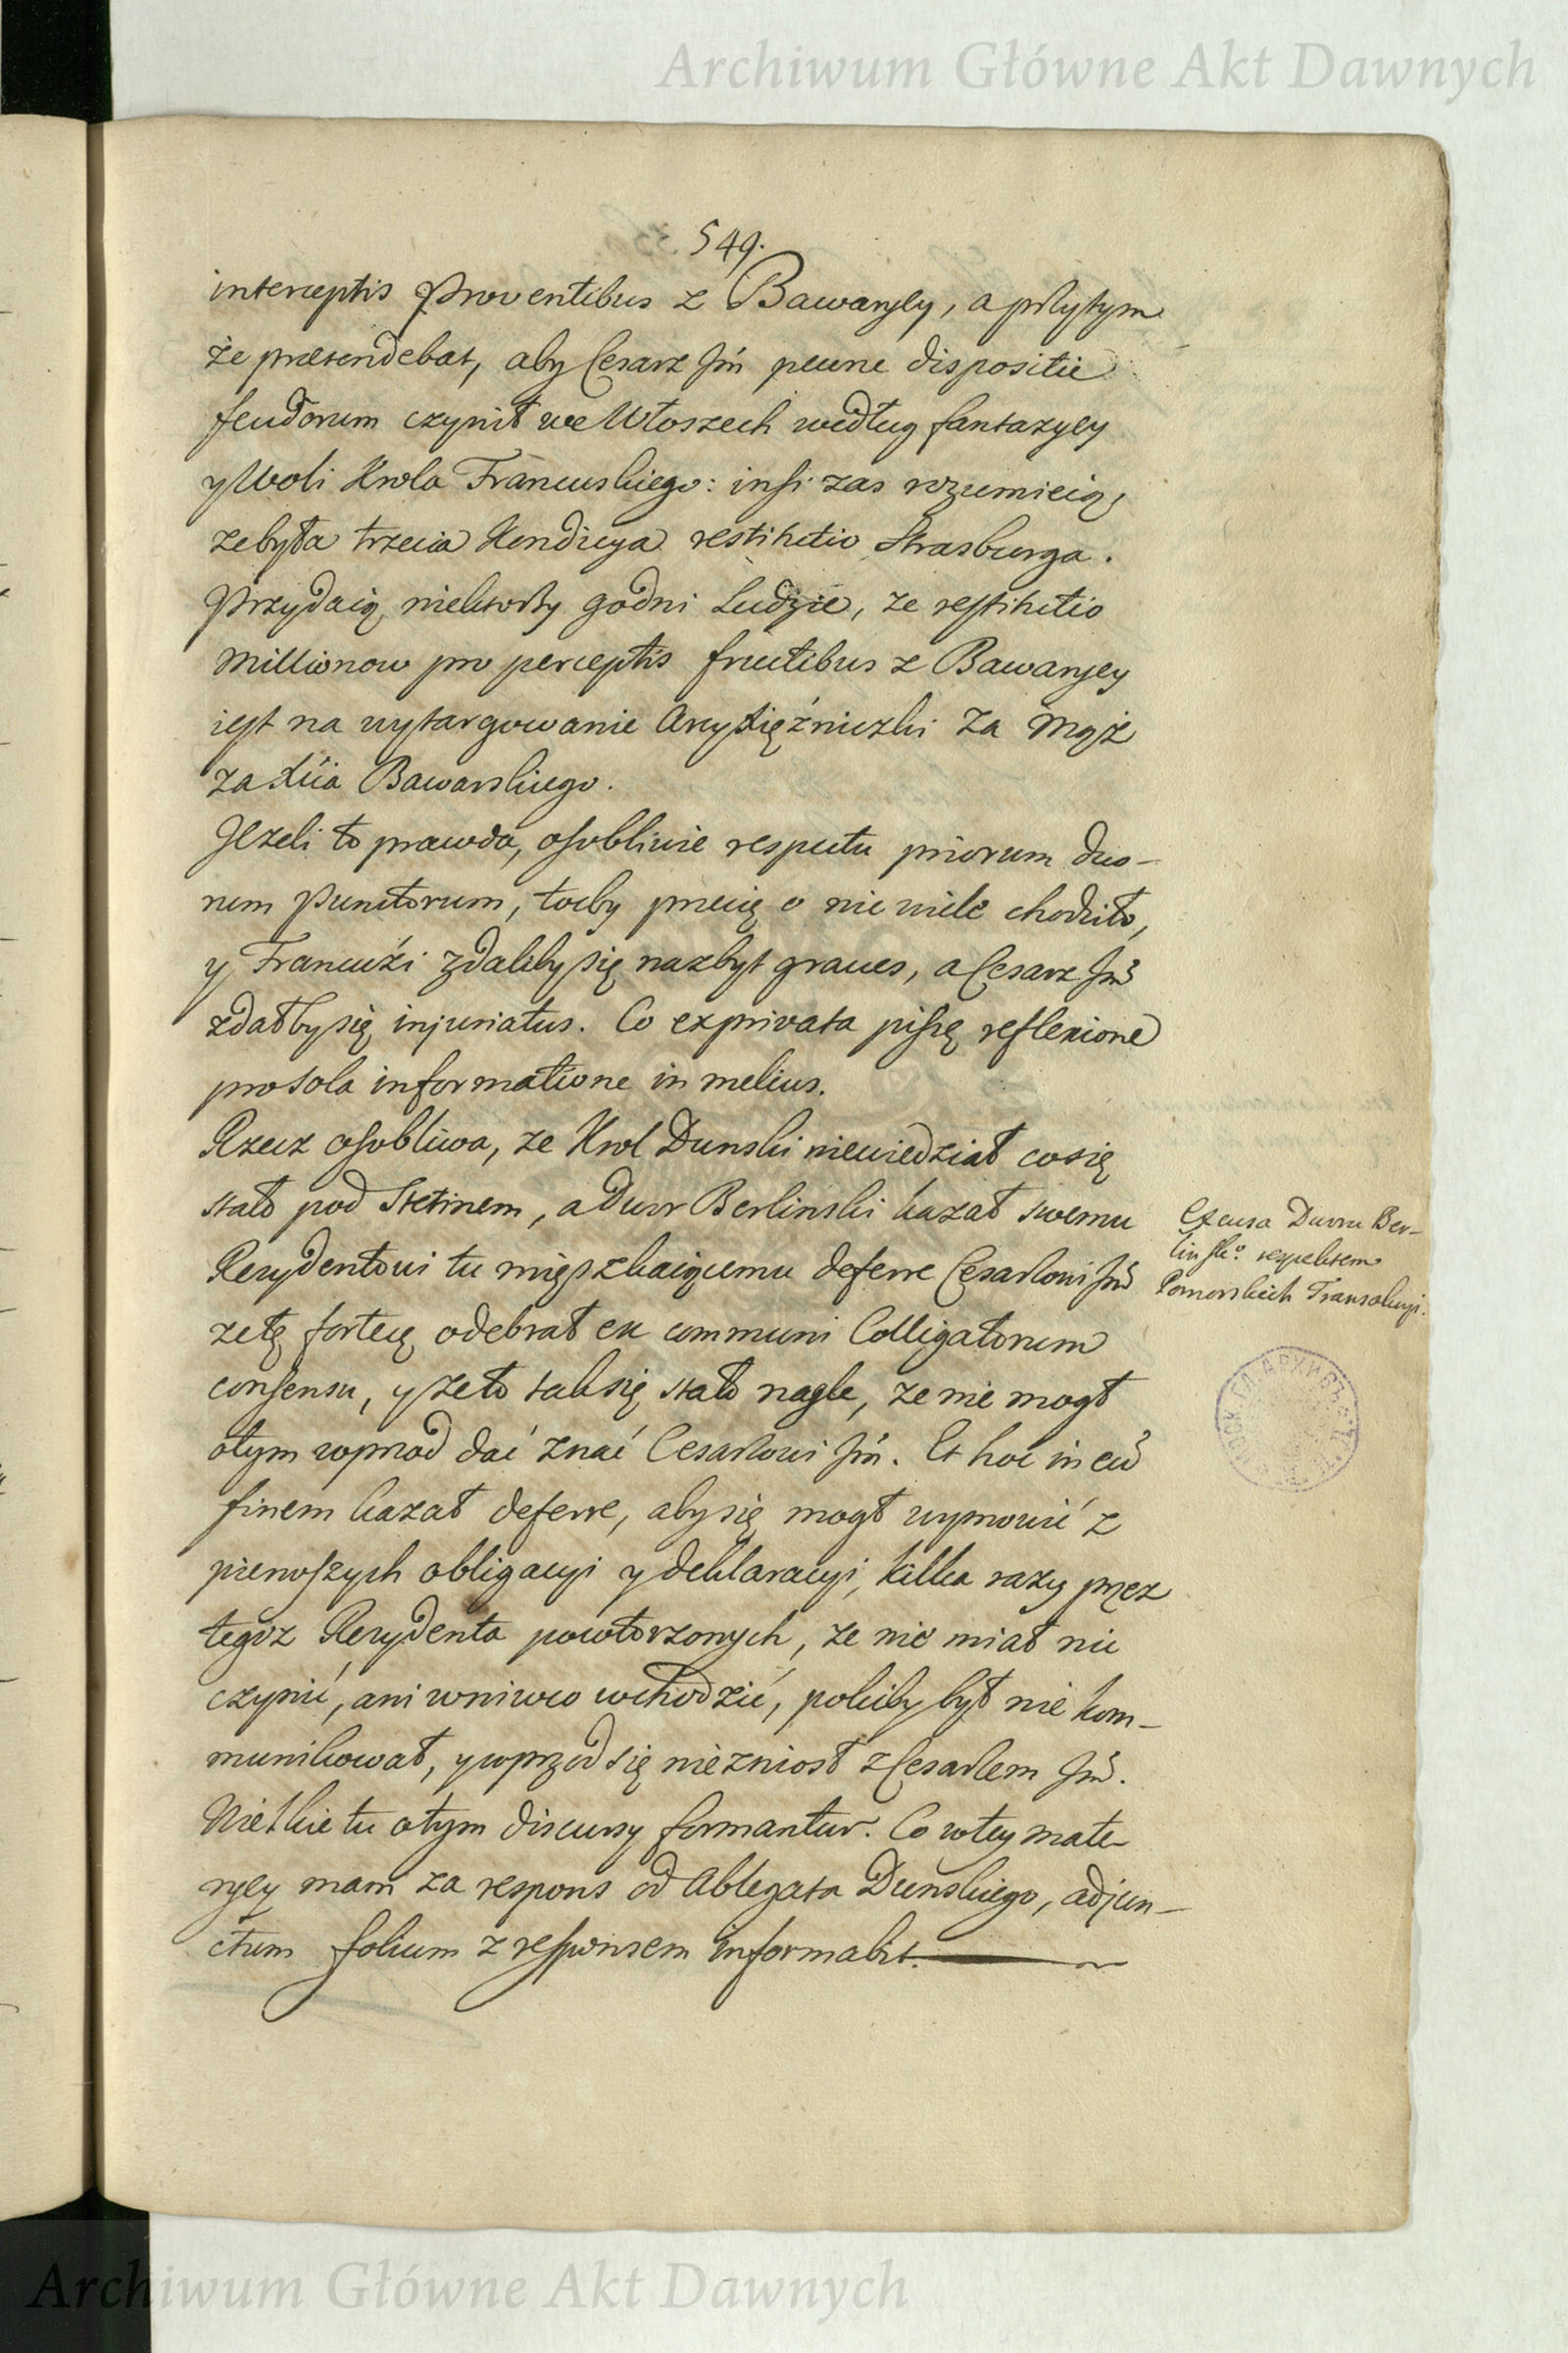 Archiwum Główne Akt Dawnych
549.
interceptis Proventibus z Bawaryey, a przytym
że praetendebat, aby Cesarz Jm̃ pewne dispositie
feudorum czynił we Włoszech według fantazyey
y Woli Krola Francuskiego: insi zas rozumieią,
ze była trzecia Kondicya restitutio Strasburga.
Przydaią niektorzy godni Ludzie, ze restitutio
Millionow pro perceptis fructibus z Bawaryey
iest na wytargowanie Arcyxiężniczki za Mąż
za Xcia Bawarskiego.
Jezeli to prawda, osobliwie respectu priorum duo-
rum Punctorum, toby przecię o nie wiele chodziło,
y Francuźi zdaliby się nazbyt graves, a Cesarz Jm̃
zdałby się injuriatus. Co ex privata piszę reflexione
pro sola informatione in melius.
Rzecz osobliwa, ze Krol Dunski niewiedział co się
stało pod Stetinem, a Dwor Berlinski kazał swemu
Rezydentowi tu mięszkaiącemu deferre Cesarzowi Jm̃
ze tę fortecę odebrał ex communi Colligatorum
consensu, y ze to tak się stało nagle, ze nie mogł
o tym wprzod dać znać Cesarzowi Jm̃. Et hoc in eũ
finem kazał deferre, aby się mogł wymowić z
pierwszych obligacyi y deklaracyi, kilka razy przez
tegoz Rezydenta powtorzonych, ze nie miał nic
czynić, ani wniwco wchodzić, pokiby był nie kom-
munikował, y wprzod się nie zniosł z Cesarzem Jm̃.
Wielkie tu o tym discursy formantur. Co w tey mate-
ryey mam za respons od Ablegata Dunskiego, adjun-
ctum folium z responsem informabit.
Excusa Dworu Ber-
linsko. respektem
Pomorskich Transakcyi.
Archiwum Główne Akt Dawnych